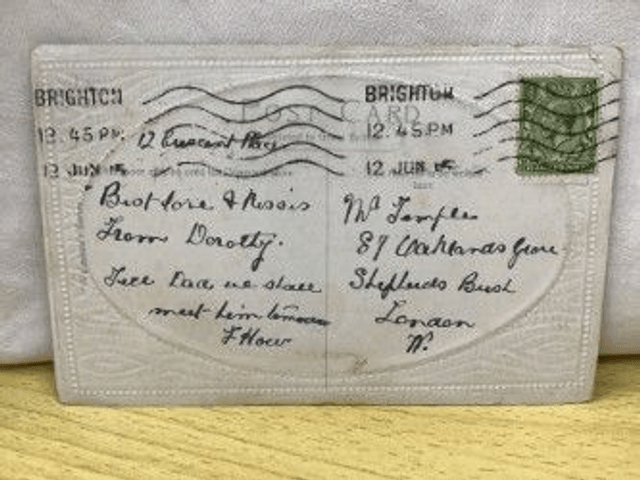 BRIGHTON
12.45 PM
12 JUN 15
BRIGHTON
12.45 PM
12 JUN 15
POST CARD
12 Crescent Place
Best love & Kisses
From Dorothy.
Tell Dad we shall
meet him tomorrow
F How
Mr Temple
87 Oaklands Grove
Shepherds Bush
London
W.